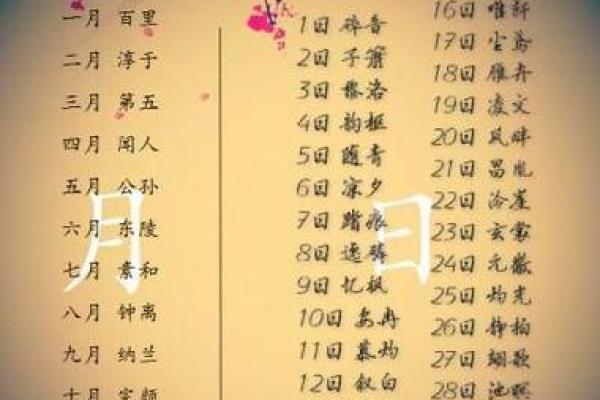 一月 百里
二月 淳于
三月 第五
四月 闻人
五月 公孙
六月 东陵
七月 素和
八月 钟离
九月 纳兰
月
1日 碎音
2日 子
3日 黎洛
4日 韵枢
5日 随青
6日 凉夕
7日 踏痕
8日 逸
9日 忆枫
10日 安冉
11日 慕灼
12日 叙白
日
16日 唯轩
17日 尘鸢
18日 雁卉
19日 凌文
20日 风畔
21日 昌胤
22日 汾崖
23日 玄霰
24日 元徽
25日 灼光
26日 铮柏
27日 翊歌
28日 池暝